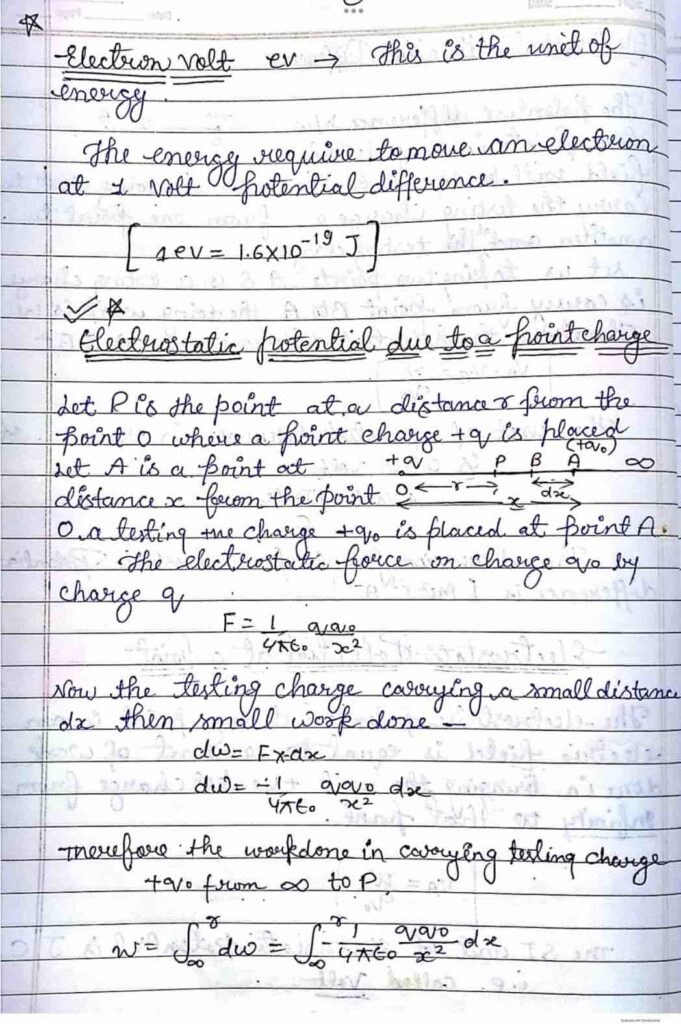 Electron volt ev → This is the unit of
energy.
The energy require to move an electron
at 1 volt potential difference.
[1ev = 1.6×10⁻¹⁹ J]
Electrostatic potential due to a point charge
Let P is the point at a distance r from the
point O where a point charge +q is placed
Let A is a point at
+q P B A (+q₀) ∞
distance x from the point
O ← r → dx
x
O. a testing +ve charge +q₀ is placed at point A.
The electrostatic force on charge q₀ by
charge q
F = 1/4πϵ₀ qq₀/x²
Now the testing charge carrying a small distance
dx then small work done –
dw = F×-dx
dw = -1/4πϵ₀ qq₀/x² dx
Therefore the workdone in carrying testing charge
+q₀ from ∞ to P.
W = ∫∞^r dw = ∫∞^r -1/4πϵ₀ qq₀/x² dx